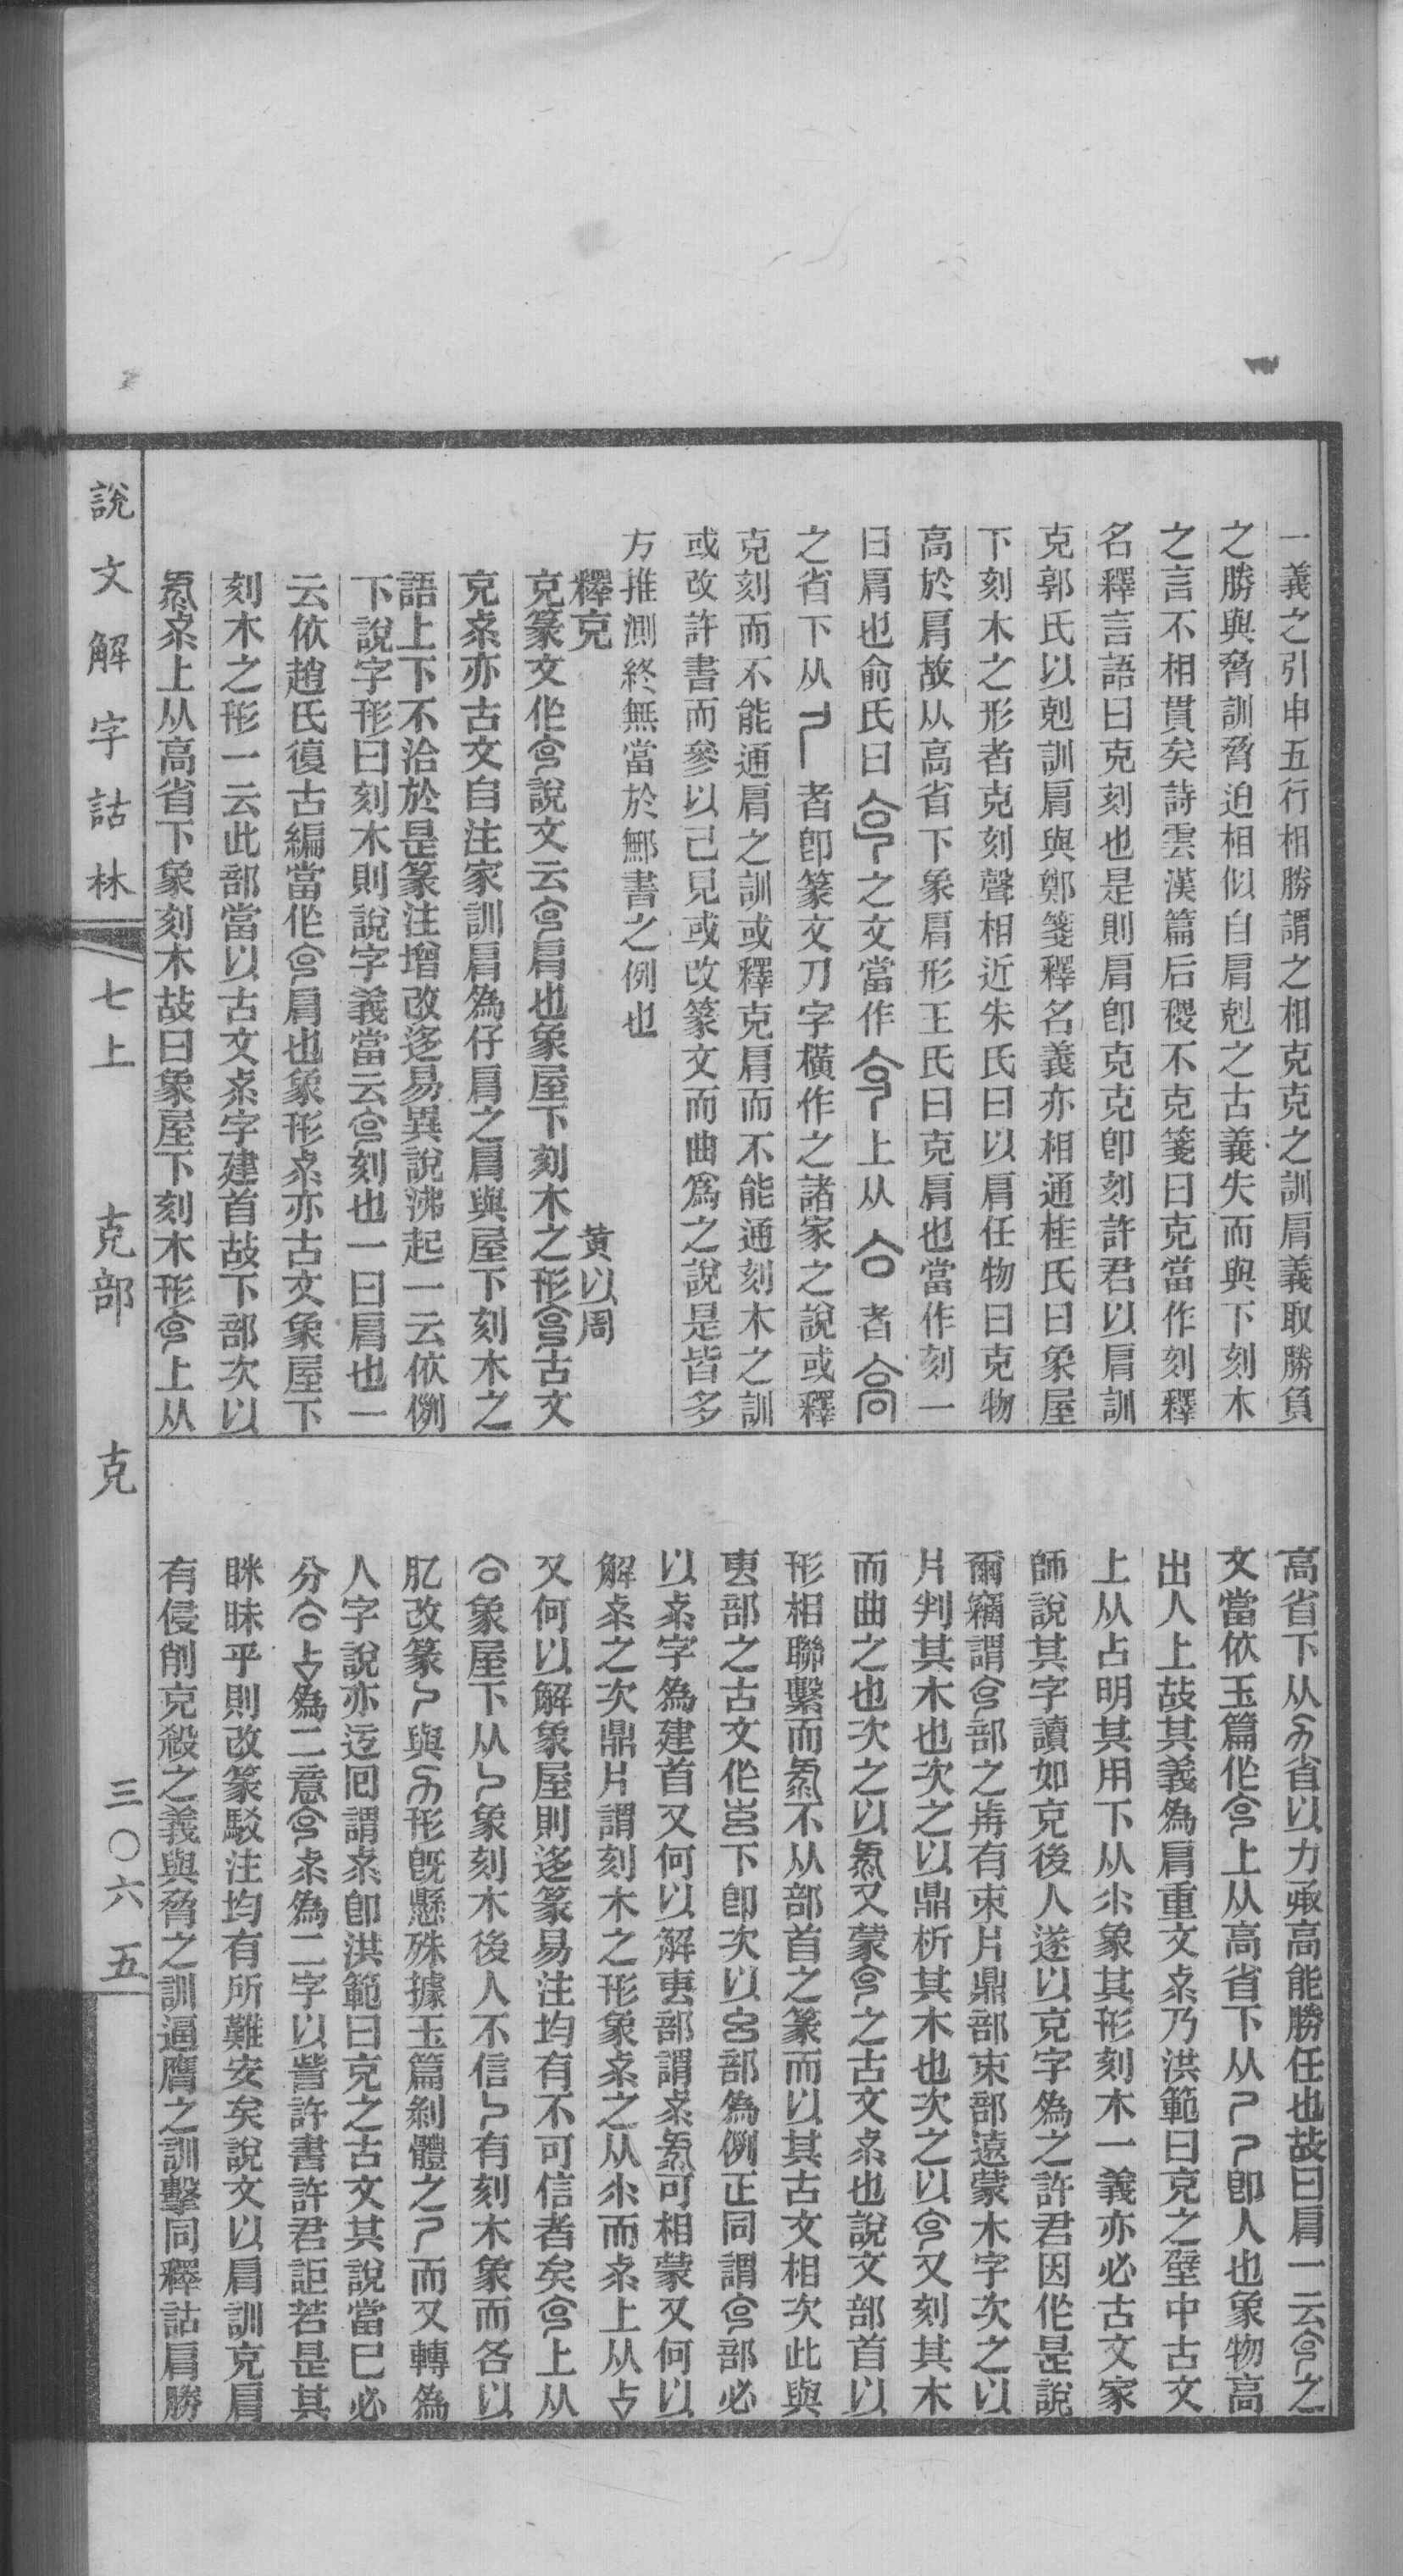 一義之引申五行相勝謂之相克克之訓肩義取勝負
之勝與脅訓脅迫相似自肩剋之古義失而與下刻木
之言不相貫矣詩雲漢篇后稷不克箋曰克當作刻釋
名釋言語曰克刻也是則肩卽克克卽刻許君以肩訓
克郭氏以剋訓肩與鄭箋釋名義亦相通桂氏曰象屋
下刻木之形者克刻聲相近朱氏曰以肩任物曰克物
高於肩故从高省下象肩形王氏曰克肩也當作刻一
曰肩也俞氏曰之文當作上从者
之省下从者卽篆文刀字橫作之諸家之說或釋
克刻而不能通肩之訓或釋克肩而不能通刻木之訓
或改許書而參以己見或改篆文而曲爲之說是皆多
方推測終無當於鄦書之例也
釋克 黃以周
克篆文作說文云肩也象屋下刻木之形古文
克亦古文自注家訓肩爲仔肩之肩與屋下刻木之
語上下不洽於是篆注增改迻易異說沸起一云依例
下說字形曰刻木則說字義當云刻也一曰肩也一
云依趙氏復古編當作肩也象形亦古文象屋下
刻木之形一云此部當以古文字建首故下部次以
上从高省下象刻木故曰象屋下刻木形上从
高省下从省以力承高能勝任也故曰肩一云之
文當依玉篇作上从高省下从卽人也象物高
出人上故其義爲肩重文乃洪範曰克之壁中古文
上从占明其用下从象其形刻木一義亦必古文家
師說其字讀如克後人遂以克字爲之許君因作是說
爾竊謂部之歬有朿片鼎部朿部遠蒙木字次之以
片判其木也次之以鼎析其木也次之以又刻其木
而曲之也次之以又蒙之古文也說文部首以
形相聯繫而不从部首之篆而以其古文相次此與
叀部之古文作下卽次以部爲例正同謂部必
以字爲建首又何以解叀部謂可相蒙又何以
解之次鼎片謂刻木之形象之从而上从
又何以解象屋則迻篆易注均有不可信者矣上从
象屋下从象刻木後人不信有刻木象而各以
肊改篆與形旣懸殊據玉篇剏體之而又轉爲
人字說亦迂回謂卽洪範曰克之古文其說當已必
分爲二意爲二字以訾許書許君詎若是其
眯昧乎則改篆駁注均有所難安矣說文以肩訓克肩
有侵削克殺之義與脅之訓逼膺之訓擊同釋詁肩勝
說文解字詁林 七上 克部 克 三〇六五